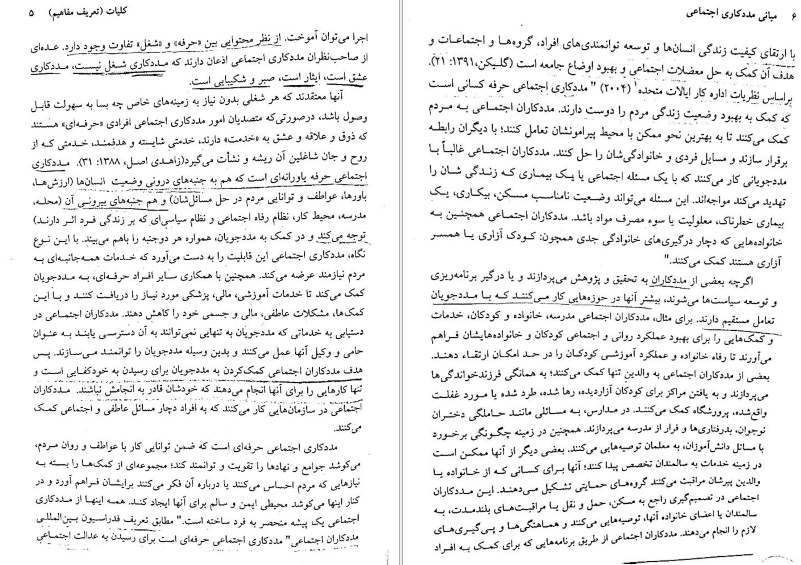 کلیات (تعریف مفاهیم) ۵
اجرا می‌توان آموخت. از نظر محتوایی بین «حرفه» و «شغل» تفاوت وجود دارد. عده‌ای
از صاحب‌نظران مددکاری اجتماعی اذعان دارند که مددکاری شغل نیست، مددکاری
عشق است، ایثار است، صبر و شکیبایی است.
آنها معتقدند که هر شغلی بدون نیاز به زمینه‌های خاص چه بسا به سهولت قابل
وصول باشد، درصورتی‌که متصدیان امور مددکاری اجتماعی افرادی «حرفه‌ای» هستند
که ذوق و علاقه و عشق به «خدمت» دارند، خدمتی شایسته و هدفمند، خدمتی که از
روح و جان شاغلین آن ریشه و نشأت می‌گیرد(زاهدی اصل، ۱۳۸۸: ۳۱). مددکاری
اجتماعی حرفه یاورانه‌ای است که هم به جنبه‌های درونی وضعیت انسان‌ها (ارزش‌ها،
باورها، عواطف و توانایی مردم در حل مسائل‌شان) و هم جنبه‌های بیرونی آن (محله،
مدرسه، محیط کار، نظام رفاه اجتماعی و نظام سیاسی‌ای که بر زندگی فرد اثر دارند)
توجه می‌کند و در کمک به مددجویان، همواره هر دوجنبه را باهم می‌بیند. با این نوع
نگاه، مددکاری اجتماعی این قابلیت را به دست می‌آورد که خدمات همه‌جانبه‌ای به
مردم نیازمند عرضه می‌کند. همچنین با همکاری سایر افراد حرفه‌ای، به مددجویان
کمک می‌کند تا خدمات آموزشی، مالی، پزشکی مورد نیاز را دریافت کنند و با این
کمک‌ها، مشکلات عاطفی، مالی و جسمی خود را کاهش دهند. مددکاران اجتماعی در
دستیابی به خدماتی که مددجویان به تنهایی نمی‌توانند به آن دسترسی یابند به عنوان
حامی و وکیل آنها عمل می‌کنند و بدین وسیله مددجویان را توانمند می‌سازند. پس
هدف مددکاران اجتماعی کمک‌کردن به مددجویان برای رسیدن به خودکفایی است و
تنها کارهایی را برای آنها انجام می‌دهند که خودشان قادر به انجامش نباشند. مددکاران
اجتماعی در سازمان‌هایی کار می‌کنند که به افراد دچار مسائل عاطفی و اجتماعی کمک
می‌کنند.
مددکاری اجتماعی حرفه‌ای است که ضمن توانایی کار با عواطف و روان مردم،
می‌کوشد جوامع و نهادها را تقویت و توانمند کند؛ مجموعه‌ای از کمک‌ها را بسته به
نیازهایی که مردم احساس می‌کنند یا درباره آن فکر می‌کنند برایشان فراهم آورد و در
کنار اینها می‌کوشد محیطی ایمن و سالم برای آنها ایجاد کند. همه اینها از مددکاری
اجتماعی یک پیشه منحصر به فرد ساخته است." مطابق تعریف فدراسیون بین‌المللی
مددکاران اجتماعی" مددکاری اجتماعی حرفه‌ای است برای رسیدن به عدالت اجتماعی
۶ مبانی مددکاری اجتماعی
با ارتقای کیفیت زندگی انسان‌ها و توسعه توانمندی‌های افراد، گروه‌ها و اجتماعات و
هدف آن کمک به حل معضلات اجتماعی و بهبود اوضاع جامعه است (گلیکن،۱۳۹۱: ۲۱).
براساس نظریات اداره کار ایالات متحده۱ (۲۰۰۴) " مددکاری اجتماعی حرفه کسانی است
که کمک به بهبود وضعیت زندگی مردم را دوست دارند. مددکاران اجتماعی به مردم
کمک می‌کنند تا به بهترین نحو ممکن با محیط پیرامونشان تعامل کنند؛ با دیگران رابطه
برقرار سازند و مسایل فردی و خانوادگی‌شان را حل کنند. مددکاران اجتماعی غالباً با
مددجویانی کار می‌کنند که با یک مسئله اجتماعی یا یک بیماری که زندگی شان را
تهدید می‌کند مواجه‌اند. این مسئله می‌تواند وضعیت نامناسب مسکن، بیکاری، یک
بیماری خطرناک، معلولیت یا سوء مصرف مواد باشد. مددکاران اجتماعی همچنین به
خانواده‌هایی که دچار درگیری‌های خانوادگی جدی همچون: کودک آزاری یا همسر
آزاری هستند کمک می‌کنند."
اگرچه بعضی از مددکاران به تحقیق و پژوهش می‌پردازند و یا درگیر برنامه‌ریزی
و توسعه سیاست‌ها می‌شوند، بیشتر آنها در حوزه‌هایی کار می‌کنند که با مددجویان
تعامل مستقیم دارند. برای مثال، مددکاران اجتماعی مدرسه، خانواده و کودکان، خدمات
و کمک‌هایی را برای بهبود عملکرد روانی و اجتماعی کودکان و خانواده‌هایشان فراهم
می‌آورند تا رفاه خانواده و عملکرد آموزشی کودکان را در حد امکان ارتقاء دهند.
بعضی از مددکاران اجتماعی به والدین تنها کمک می‌کنند؛ به همانگی فرزندخواندگی‌ها
می‌پردازند و به یافتن مراکز برای کودکان آزاردیده، رها شده، طرد شده یا مورد غفلت
واقع‌شده، پرورشگاه کمک می‌کنند. در مدارس، به مسائلی مانند حاملگی دختران
نوجوان، بدرفتاری‌ها و فرار از مدرسه می‌پردازند. همچنین در زمینه چگونگی برخورد
با مسائل دانش‌آموزان، به معلمان توصیه‌هایی می‌کنند. بعضی دیگر از آنها ممکن است
در زمینه خدمات به سالمندان تخصص پیدا کنند؛ آنها برای کسانی که از خانواده یا
والدین پیرشان مراقبت می‌کنند گروه‌های حمایتی تشکیل می‌دهند. این مددکاران
اجتماعی در تصمیم‌گیری راجع به مسکن، حمل و نقل یا مراقبت‌های بلندمدت، به
سالمندان یا اعضای خانواده آنها، توصیه‌هایی می‌کنند و هماهنگی‌ها و پی‌گیری‌های
لازم را انجام می‌دهند. مددکاران اجتماعی از طریق برنامه‌هایی که برای کمک به افراد